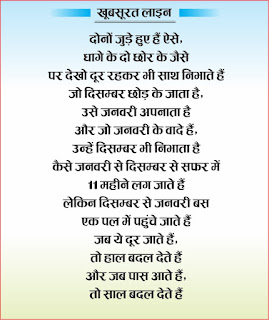 खूबसूरत लाइन
दोनों जुड़े हुए हैं ऐसे,
धागे के दो छोर के जैसे
पर देखो दूर रहकर भी साथ निभाते हैं
जो दिसम्बर छोड़ के जाता है,
उसे जनवरी अपनाता है
और जो जनवरी के वादे हैं,
उन्हें दिसम्बर भी निभाता है
कैसे जनवरी से दिसम्बर से सफर में
11 महीने लग जाते हैं
लेकिन दिसम्बर से जनवरी बस
एक पल में पहुंचे जाते हैं
जब ये दूर जाते हैं,
तो हाल बदल देते हैं
और जब पास आते हैं,
तो साल बदल देते हैं